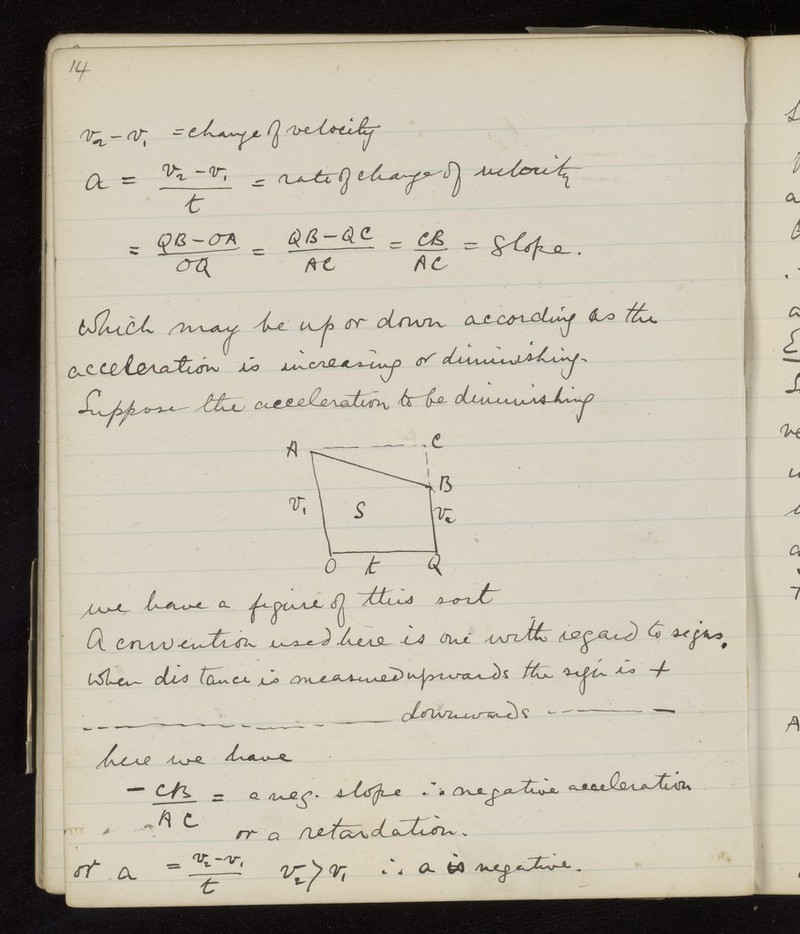 14
v₂ – v₁ = change of velocity
a = (v₂ – v₁)/t = rate of change of velocity
= (QB – OA)/OQ = (QB – QC)/AC = CB/AC = Slope.
which may be up or down according as the
acceleration is increasing or diminishing.
Suppose the acceleration to be diminishing
A C
B
v₁ S v₂
O t Q
we have a figure of this sort
A convention used here is one with regard to signs.
When distance is measured upwards the sign is +
downwards –
here we have
– CB/AC = a neg. slope ∴ negative acceleration
or a retardation.
or a = (v₂ – v₁)/t v₂ > v₁ ∴ a is negative.